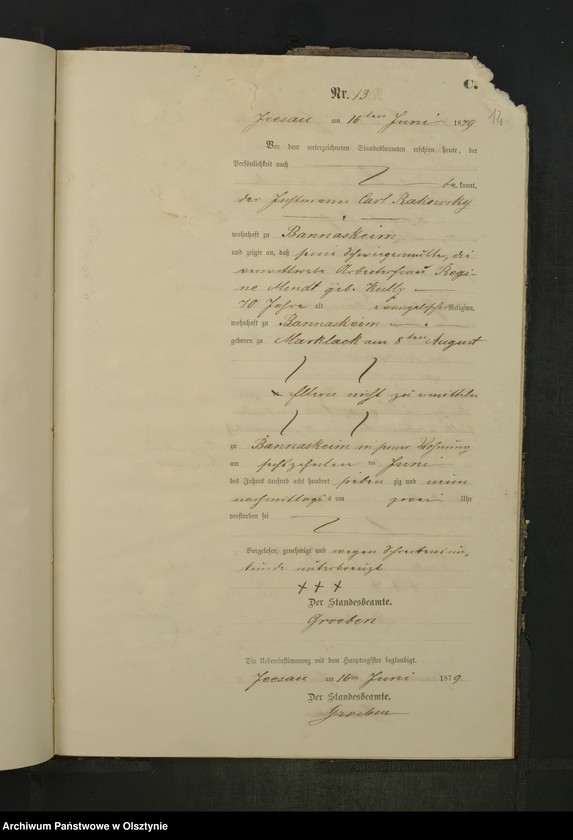 C.
Nr. 13
14
Jeesau am 16ten Juni 1879
Vor dem unterzeichneten Standesbeamten erschien heute, der
Persönlichkeit nach
bekannt,
der Instmann Carl Rakowsky
wohnhaft zu Bannaskeim
und zeigte an, daß seine Schwiegermutter, die
verwittwete Arbeiterfrau Regi-
ne Mendt geb.
70 Jahre alt evangelischer Religion,
wohnhaft zu Bannaskeim
geboren zu Marklack am 8ten August
Eltern nicht zu ermitteln
zu Bannaskeim in seiner Wohnung
am sechszehnten ten Juni
des Jahres tausend acht hundert sieben zig und neun
nachmittags um zwei Uhr
verstorben sei
Vorgelesen, genehmigt und wegen Schreibensun-
kunde unterkreuzt
+ + +
Der Standesbeamte.
Groeben
Die Uebereinstimmung mit dem Hauptregister beglaubigt.
Jeesau am 16ten Juni 1879
Der Standesbeamte.
Groeben
Archiwum Państwowe w Olsztynie